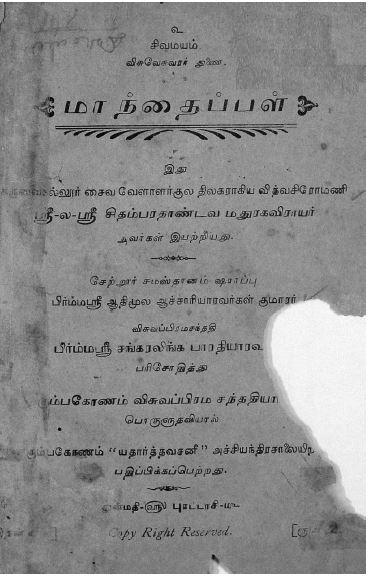 உ
சிவமயம்.
விசுவேசுவரர் துணை.
மாந்தைப்பள்
இது
சைவ வேளாளர்குல திலகராகிய வித்வசிரோமணி
ஸ்ரீ-ல-ஸ்ரீ சிதம்பரதாண்டவ மதுரகவிராயர்
அவர்கள் இயற்றியது.
சேற்றூர் சமஸ்தானம் ஷராப்பு
பிர்ம்மஸ்ரீ ஆதிமூல ஆச்சாரியாரவர்கள் குமாரர்
விசுவப்பிரமசந்ததி
பிர்ம்மஸ்ரீ சங்கரலிங்க பாரதியாரவ
பரிசோதித்து
ம்பகோணம் விசுவப்பிரம சந்ததியா
பொருளுதவியால்
கும்பகோணம் “யதார்த்தவசனீ” அச்சியந்திரசாலையி
பதிப்பிக்கப்பெற்றது.
புரட்டாசி
Copy Right Reserved.